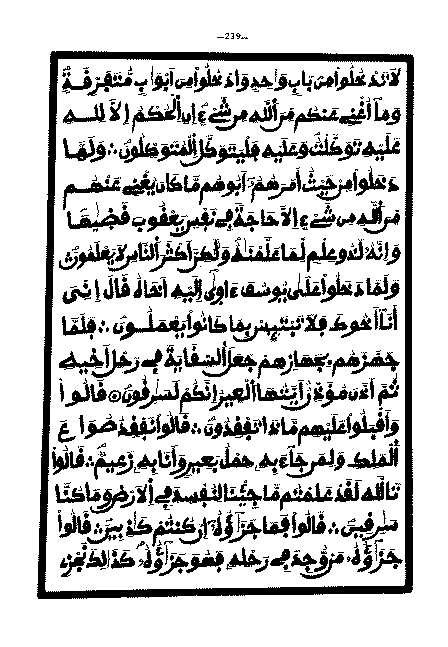 —239—
لَا تَدْخُلُوا۟ مِنۢ بَابٍ وَٰحِدٍ وَادْخُلُوا۟ مِنْ أَبْوَٰبٍ مُّتَفَرِّقَةٍ
وَمَآ أُغْنِى عَنكُم مِّنَ ٱللَّهِ مِن شَىْءٍ إِنِ ٱلْحُكْمُ إِلَّا لِلَّهِ
عَلَيْهِ تَوَكَّلْتُ وَعَلَيْهِ فَلْيَتَوَكَّلِ ٱلْمُتَوَكِّلُونَ ∴ وَلَمَّا
دَخَلُوا۟ مِنْ حَيْثُ أَمَرَهُمْ أَبُوهُم مَّا كَانَ يُغْنِى عَنْهُم
مِّنَ ٱللَّهِ مِن شَىْءٍ إِلَّا حَاجَةً فِى نَفْسِ يَعْقُوبَ قَضَىٰهَا
وَإِنَّهُۥ لَذُو عِلْمٍ لِّمَا عَلَّمْنَٰهُ وَلَٰكِنَّ أَكْثَرَ ٱلنَّاسِ لَا يَعْلَمُونَ
وَلَمَّا دَخَلُوا۟ عَلَىٰ يُوسُفَ ءَاوَىٰٓ إِلَيْهِ أَخَاهُ قَالَ إِنِّىٓ
أَنَا۠ أَخُوكَ فَلَا تَبْتَئِسْ بِمَا كَانُوا۟ يَعْمَلُونَ ∴ فَلَمَّا
جَهَّزَهُم بِجَهَازِهِمْ جَعَلَ ٱلسِّقَايَةَ فِى رَحْلِ أَخِيهِ
ثُمَّ أَذَّنَ مُؤَذِّنٌ أَيَّتُهَا ٱلْعِيرُ إِنَّكُمْ لَسَٰرِقُونَ ۞ قَالُوا۟
وَأَقْبَلُوا۟ عَلَيْهِم مَّاذَا تَفْقِدُونَ ∴ قَالُوا۟ نَفْقِدُ صُوَاعَ
ٱلْمَلِكِ وَلِمَن جَآءَ بِهِۦ حِمْلُ بَعِيرٍ وَأَنَا۠ بِهِۦ زَعِيمٌ ∴ قَالُوا۟
تَٱللَّهِ لَقَدْ عَلِمْتُم مَّا جِئْنَا لِنُفْسِدَ فِى ٱلْأَرْضِ وَمَا كُنَّا
سَٰرِقِينَ ∴ قَالُوا۟ فَمَا جَزَٰٓؤُهُۥٓ إِن كُنتُمْ كَٰذِبِينَ ∴ قَالُوا۟
جَزَٰٓؤُهُۥ مَن وُجِدَ فِى رَحْلِهِۦ فَهُوَ جَزَٰٓؤُهُۥ كَذَٰلِكَ نَجْزِى